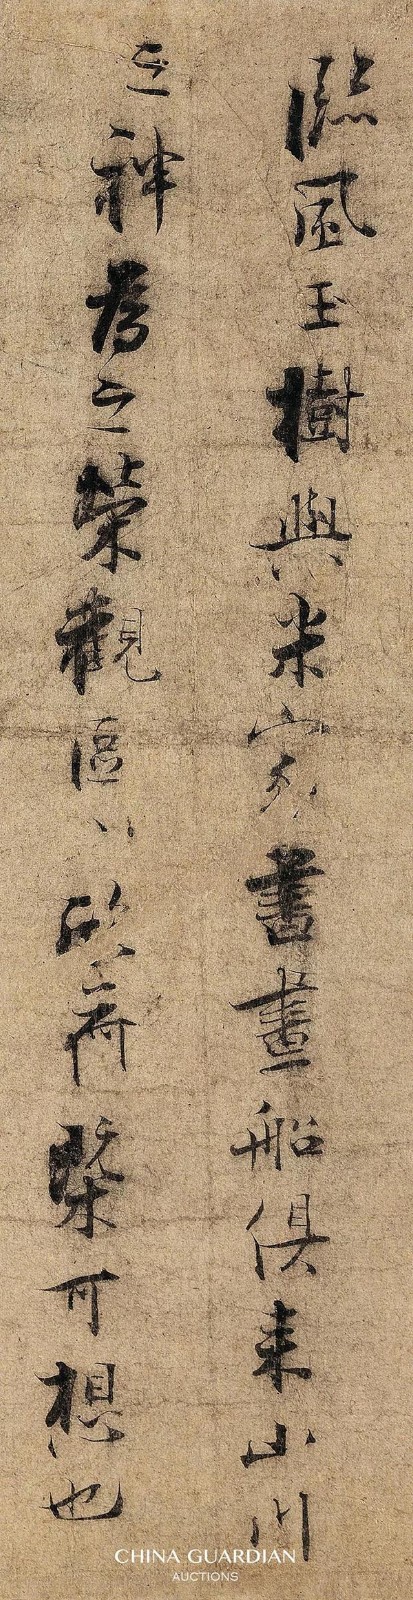 臨風玉樹與米家書畫船俱来山川
之神為之榮觀區〻槩可想也
CHINA GUARDIAN
AUCTIONS